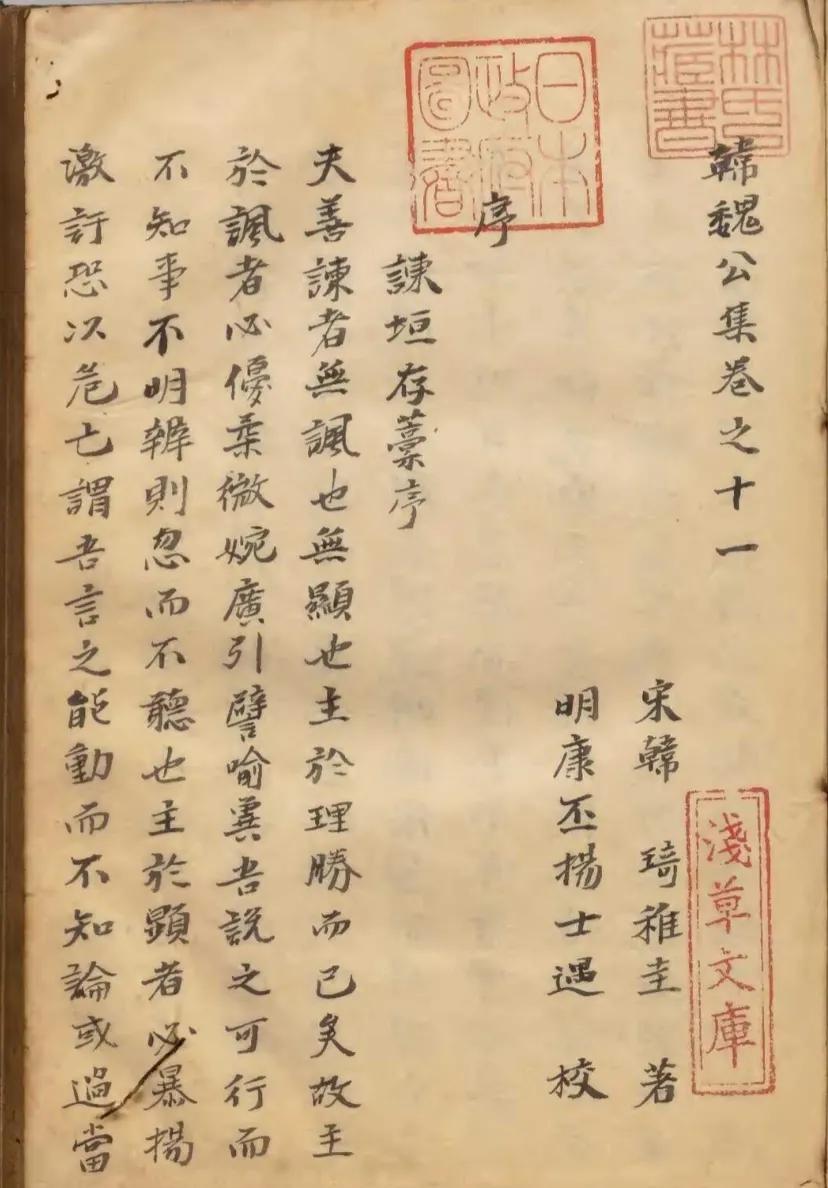 林氏藏書
韓魏公集卷之十一
淺草文庫
宋韓 琦稚圭 著
明康丕揚士遇 校
日本政府圖書
序
諫垣存藁序
夫善諫者無諷也無顯也主於理勝而已矣故主
於諷者必優柔微婉廣引譬喻冀吾説之可行而
不知事不明辨則忽而不聽也主於顯者必暴揚
激訐恐以危亡謂吾言之能動而不知論或過當